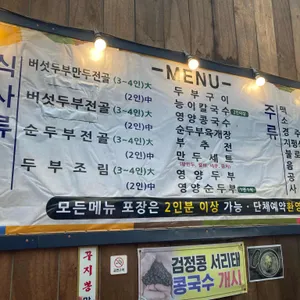 MENU
식사류
버섯두부만두전골 (3~4인)大
(2인)中
버섯두부전골 (3~4인)大
(2인)中
순두부전골 (3~4인)大
(2인)中
두부조림 (3~4인)大
(2인)中
두부구이
능이칼국수
영양콩국수
순두부육개장
부추전
만두세트
영양두부
영양순두부
주류
모든메뉴 포장은 2인분 이상 가능 · 단체예약환영
검정콩 서리태
콩국수 개시